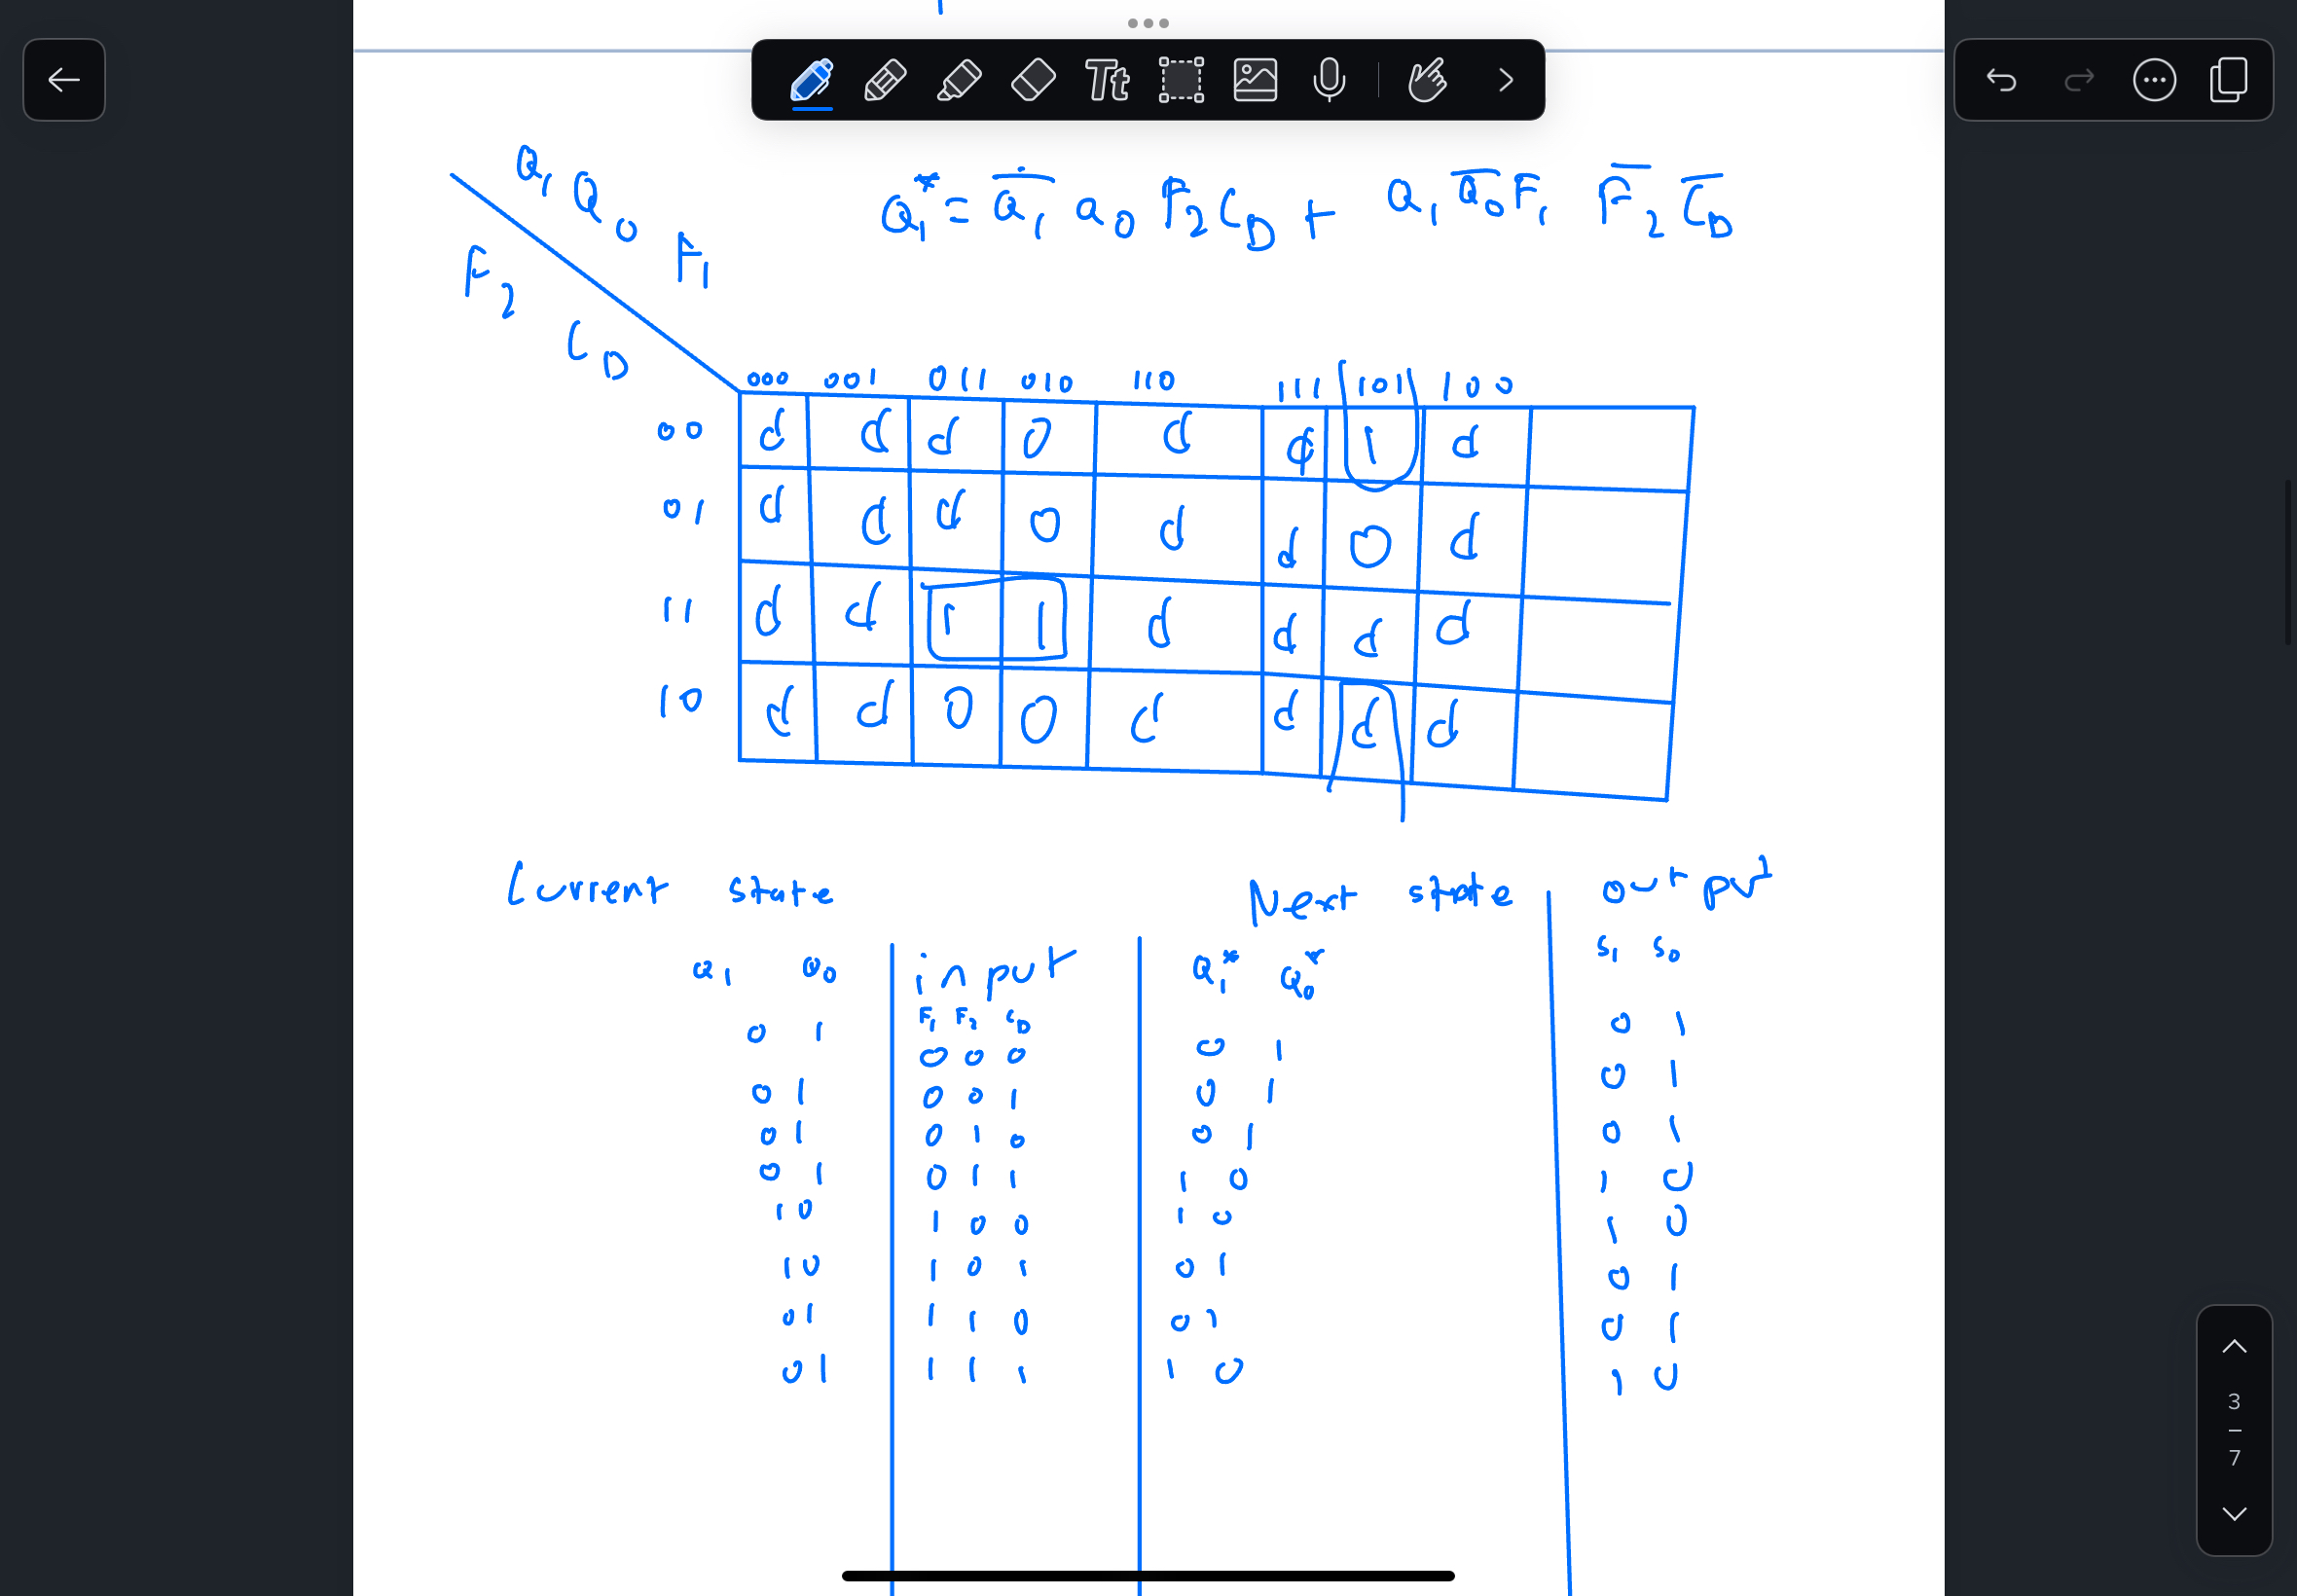 Q1 Q0 F1
F2 CD
Q1* = Q̅1 Q0 F2 CD + Q1 Q̅0 F1 F̅2 C̅D
000 001 011 010 110 111 101 100
00 d d d 0 d d 1 d
01 d d d 0 d d 0 d
11 d d 1 1 d d d d
10 d d 0 0 d d d d
Current state Next state output
Q1 Q0 input Q1* Q0* S1 S0
F1 F2 CD
0 1 0 0 0 0 1 0 1
0 1 0 0 1 0 1 0 1
0 1 0 1 0 0 1 0 1
0 1 0 1 1 1 0 1 0
1 0 1 0 0 1 0 1 0
1 0 1 0 1 0 1 0 1
0 1 1 1 0 0 1 0 1
0 1 1 1 1 1 0 1 0
Tt
3
7